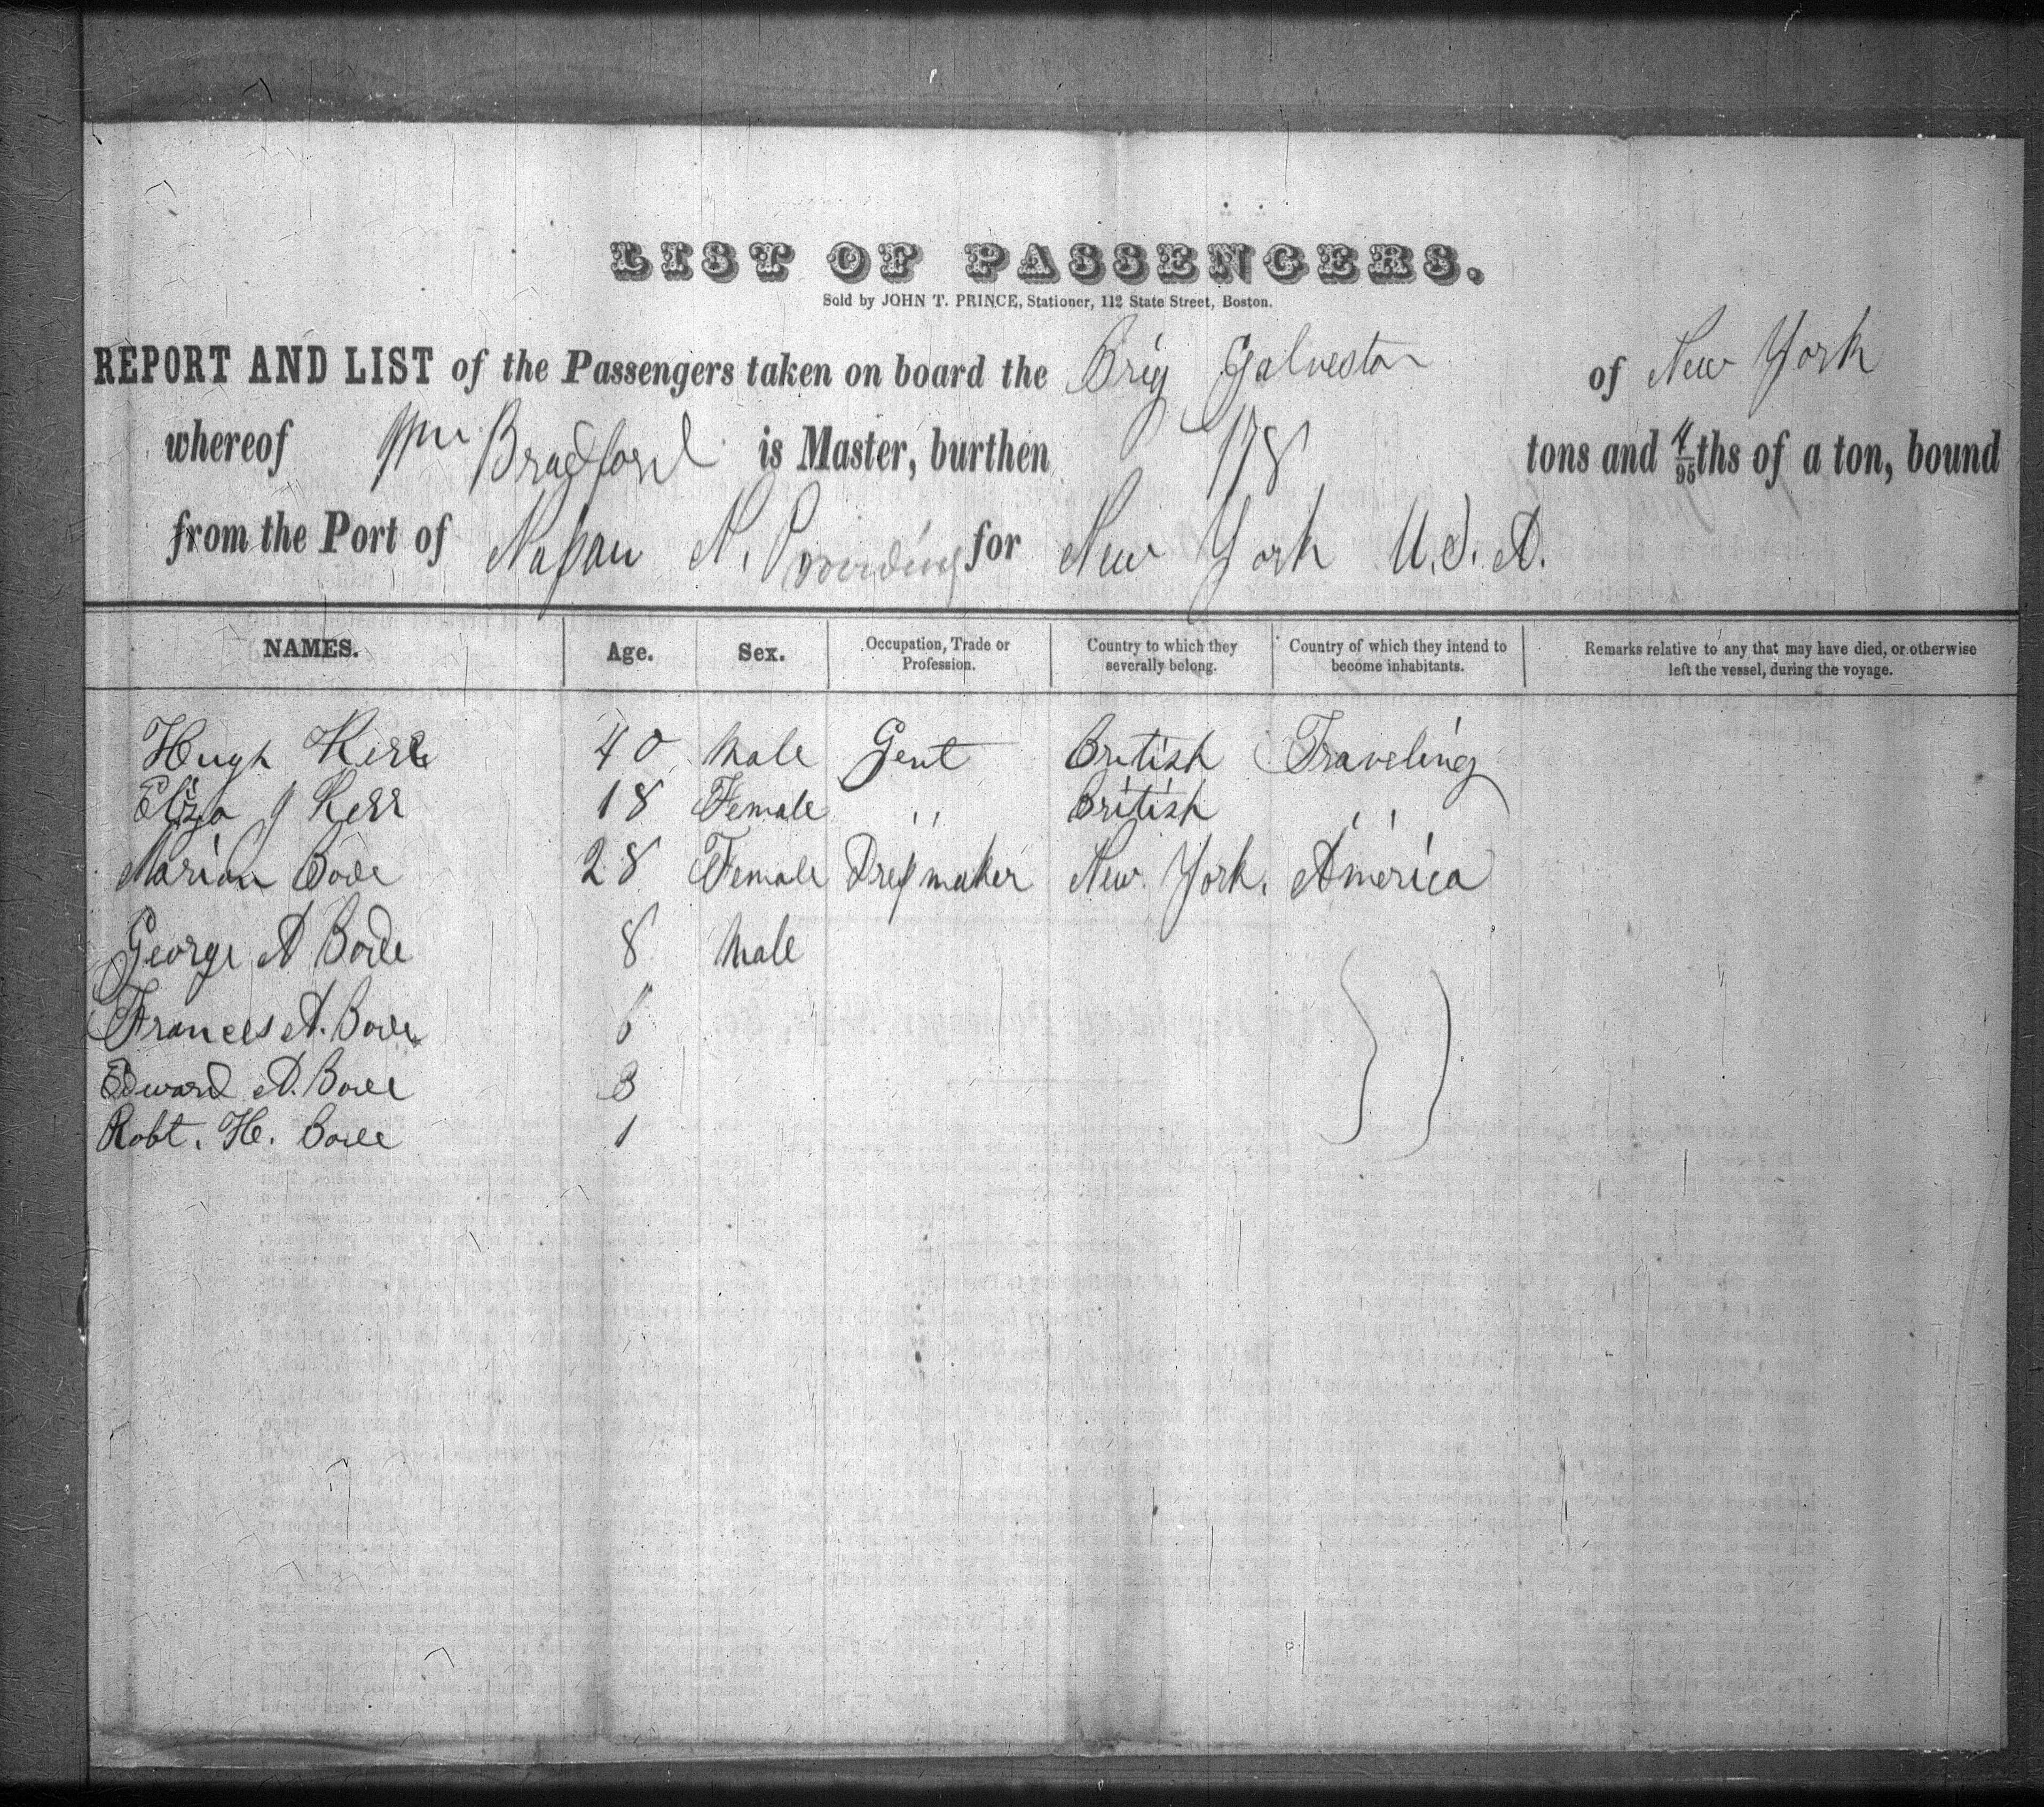 LIST OF PASSENGERS.
Sold by JOHN T. PRINCE, Stationer, 112 State Street, Boston.
REPORT AND LIST of the Passengers taken on board the Brig Galveston of New York
whereof Wm Bradford is Master, burthen 178 tons and 4/95ths of a ton, bound
from the Port of Nassau N. Providence for New York U.S.A.
NAMES. Age. Sex. Occupation, Trade or Profession. Country to which they severally belong. Country of which they intend to become inhabitants. Remarks relative to any that may have died, or otherwise left the vessel, during the voyage.
Hugh Kerr 40 Male Gent British Traveling
Eliza J Kerr 18 Female ,, British ,,
Marion Bode 28 Female Dressmaker New York. America
George A Bode 8 Male
Frances A. Bode 6
Edward A. Bode 3
Robt. H. Bode 1